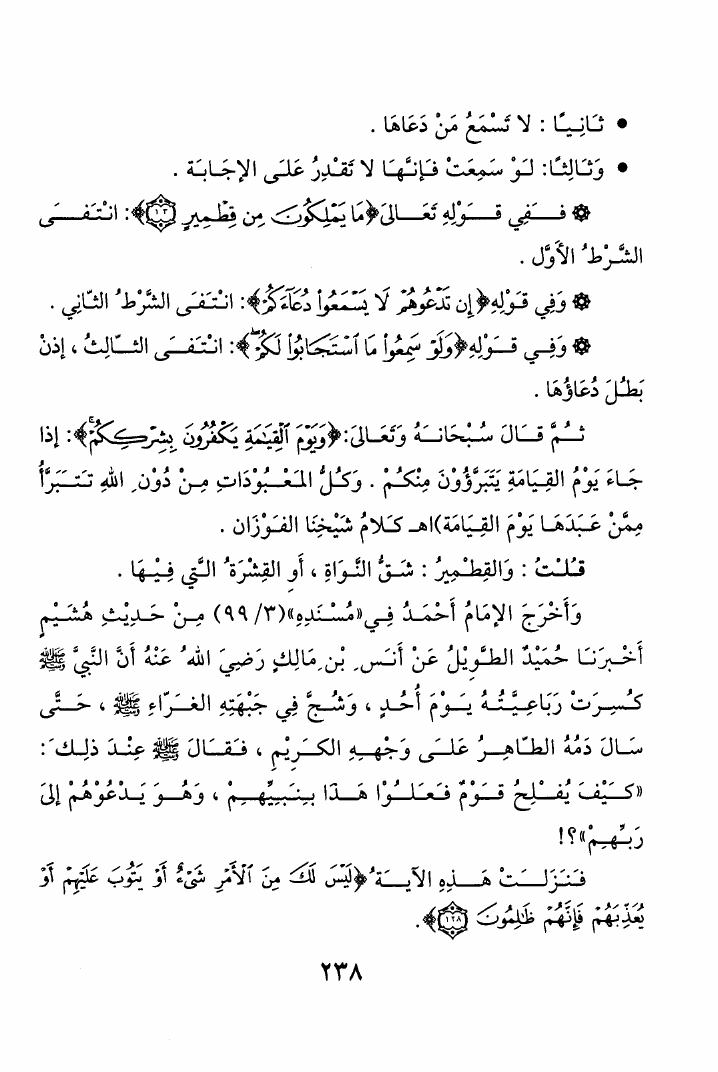 • ثَانِيًا : لا تَسْمَعُ مَنْ دَعَاهَا .
• وَثَالِثًا: لَوْ سَمِعَتْ فَإِنَّهَا لا تَقْدِرُ عَلَى الإجَابَة .
۞ فَفِي قَوْلِهِ تَعَالىَ﴿مَا يَمْلِكُونَ مِن قِطْمِيرٍ ١٣﴾: انْتَفَى
الشَّرْطُ الأوَّل .
۞ وَفِي قَوْلِهِ﴿إِن تَدْعُوهُمْ لَا يَسْمَعُوا۟ دُعَآءَكُمْ﴾: انْتَفَى الشَّرْطُ الثَّانِي .
۞ وَفِي قَوْلِهِ﴿وَلَوْ سَمِعُوا۟ مَا ٱسْتَجَابُوا۟ لَكُمْ ۖ﴾: انْتَفَى الثَّالِثُ ، إذنْ
بَطُلَ دُعَاؤُهَا .
ثُمَّ قَالَ سُبْحَانَهُ وَتَعَالىَ:﴿وَيَوْمَ ٱلْقِيَٰمَةِ يَكْفُرُونَ بِشِرْكِكُمْ ۚ﴾: إذا
جَاءَ يَوْمُ القِيَامَةِ يَتَبَرَّؤُوْنَ مِنْكُمْ . وَكُلُّ المَعْبُوْدَاتِ مِنْ دُوْنِ اللهِ تَتَبَرَّأُ
مِمَّنْ عَبَدَهَا يَوْمَ القِيَامَة)اهـ كَلامُ شَيْخِنَا الفَوْزَان .
قُلْتُ : وَالقِطْمِيرُ : شَقُّ النَّوَاةِ ، أَوِ القِشْرَةُ الَّتِي فِيْهَا .
وَأَخْرَجَ الإمَامُ أَحْمَدُ فِي«مُسْنَدِهِ»(٣/ ٩٩) مِنْ حَدِيْثِ هُشَيْمٍ
أَخْبَرَنَا حُمَيْدٌ الطَّوِيْلُ عَنْ أَنَسِ بْنِ مَالِكٍ رَضِيَ اللهُ عَنْهُ أَنَّ النَّبِيَّ ﷺ
كُسِرَتْ رَبَاعِيَّتُهُ يَوْمَ أُحُدٍ ، وَشُجَّ فِي جَبْهَتِهِ الغَرَّاءِ ﷺ ، حَتَّى
سَالَ دَمُهُ الطَّاهِرُ عَلَى وَجْهِهِ الكَرِيْمِ ، فَقَالَ ﷺ عِنْدَ ذلِكَ :
«كَيْفَ يُفْلِحُ قَوْمٌ فَعَلُوْا هَذَا بِنَبِيِّهِمْ ، وَهُوَ يَدْعُوْهُمْ إلىَ
رَبِّهِمْ»؟!
فَنَزَلَتْ هَذِهِ الآيَةُ﴿لَيْسَ لَكَ مِنَ ٱلْأَمْرِ شَىْءٌ أَوْ يَتُوبَ عَلَيْهِمْ أَوْ
يُعَذِّبَهُمْ فَإِنَّهُمْ ظَٰلِمُونَ ١٢٨﴾.
٢٣٨